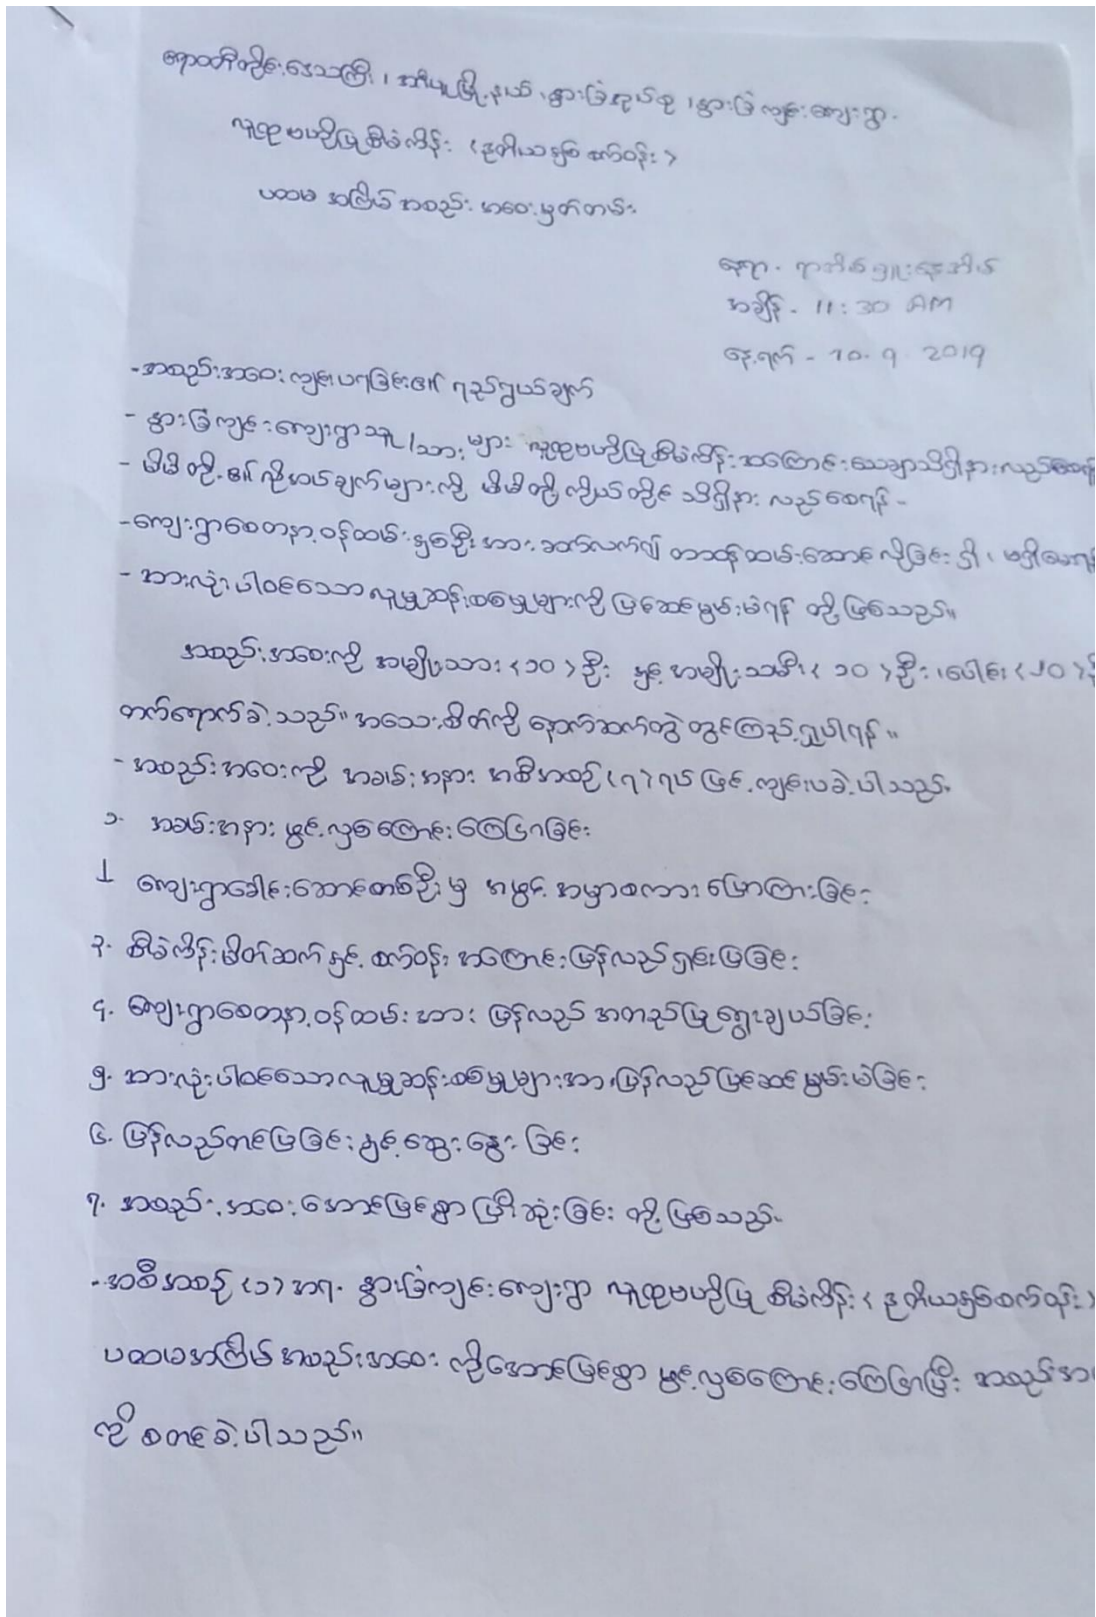 ဧရာဝတီတိုင်းဒေသကြီး၊ အိမ်မဲမြို့နယ်၊ နွားခြံအုပ်စု၊ နွားခြံကျင်းကျေးရွာ
လူထုဗဟိုပြုစီမံကိန်း <ဒုတိယနှစ်စက်ဝန်း>
ပထမ အကြိမ် အစည်း အဝေးမှတ်တမ်း
နေရာ -
အချိန် - 11:30 AM
နေ့ရက် - 10.9.2019
- အစည်းအဝေး ကျင်းပရခြင်း၏ ရည်ရွယ်ချက်
- နွားခြံကျင်းကျေးရွာသူ/သားများ လူထုဗဟိုပြုစီမံကိန်းအကြောင်းသေချာသိရှိနားလည်စေရန်
- မိမိတို့၏လိုအပ်ချက်များကို မိမိတို့ကိုယ်တိုင် သိရှိနားလည်စေရန် -
- ကျေးရွာစေတနာ့ဝန်ထမ်းနှစ်ဦးအား ဆက်လက်၍ တာဝန်ထမ်းဆောင်လိုခြင်း ရှိ၊ မရှိ
- အားလုံးပါဝင်သောလူမှုဆန်းစစ်မှုများကို ပြင်ဆင်မွမ်းမံရန် တို့ဖြစ်သည်။
အစည်းအဝေးကို အမျိုးသား <၁၀> ဦး နှင့် အမျိုးသမီး <၁၀> ဦး၊ ပေါင်း <၂၀>
တက်ရောက်ခဲ့သည်။ အသေးစိတ်ကို နောက်ဆက်တွဲ တွင်ကြည့်ရှုပါရန်။
- အစည်းအဝေးကို အခမ်းအနား အစီအစဉ် <၇> ရပ်ဖြင့်ကျင်းပခဲ့ပါသည်
၁. အခမ်းအနား ဖွင့်လှစ်ကြောင်း ကြေငြာခြင်း
၂ ကျေးရွာခေါင်းဆောင်တစ်ဦးမှ အဖွင့် အမှာစကား ပြောကြားခြင်း
၃. စီမံကိန်းမိတ်ဆက်နှင့် စက်ဝန်း အကြောင်းပြန်လည်ရှင်းပြခြင်း
၄. ကျေးရွာစေတနာ့ဝန်ထမ်းအား ပြန်လည် အတည်ပြုရွေးချယ်ခြင်း
၅. အားလုံးပါဝင်သောလူမှုဆန်းစစ်မှုများအားပြန်လည်ပြင်ဆင်မွမ်းမံခြင်း
၆. ပြန်လည်တင်ပြခြင်းနှင့်ဆွေးနွေးခြင်း
၇. အစည်းအဝေးအောင်မြင်စွာ ပြီးဆုံးခြင်း တို့ဖြစ်သည်
- အစီအစဉ် <၁> အရ နွားခြံကျင်းကျေးရွာ လူထုဗဟိုပြု စီမံကိန်း <ဒုတိယနှစ်စက်ဝန်း>
ပထမအကြိမ် အစည်းအဝေး ကိုအောင်မြင်စွာ ဖွင့်လှစ်ကြောင်းကြေငြာပြီး အစည်းအ
ကို စတင်ခဲ့ပါသည်။